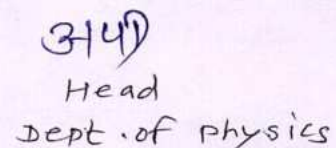 Head
Dept. of physics